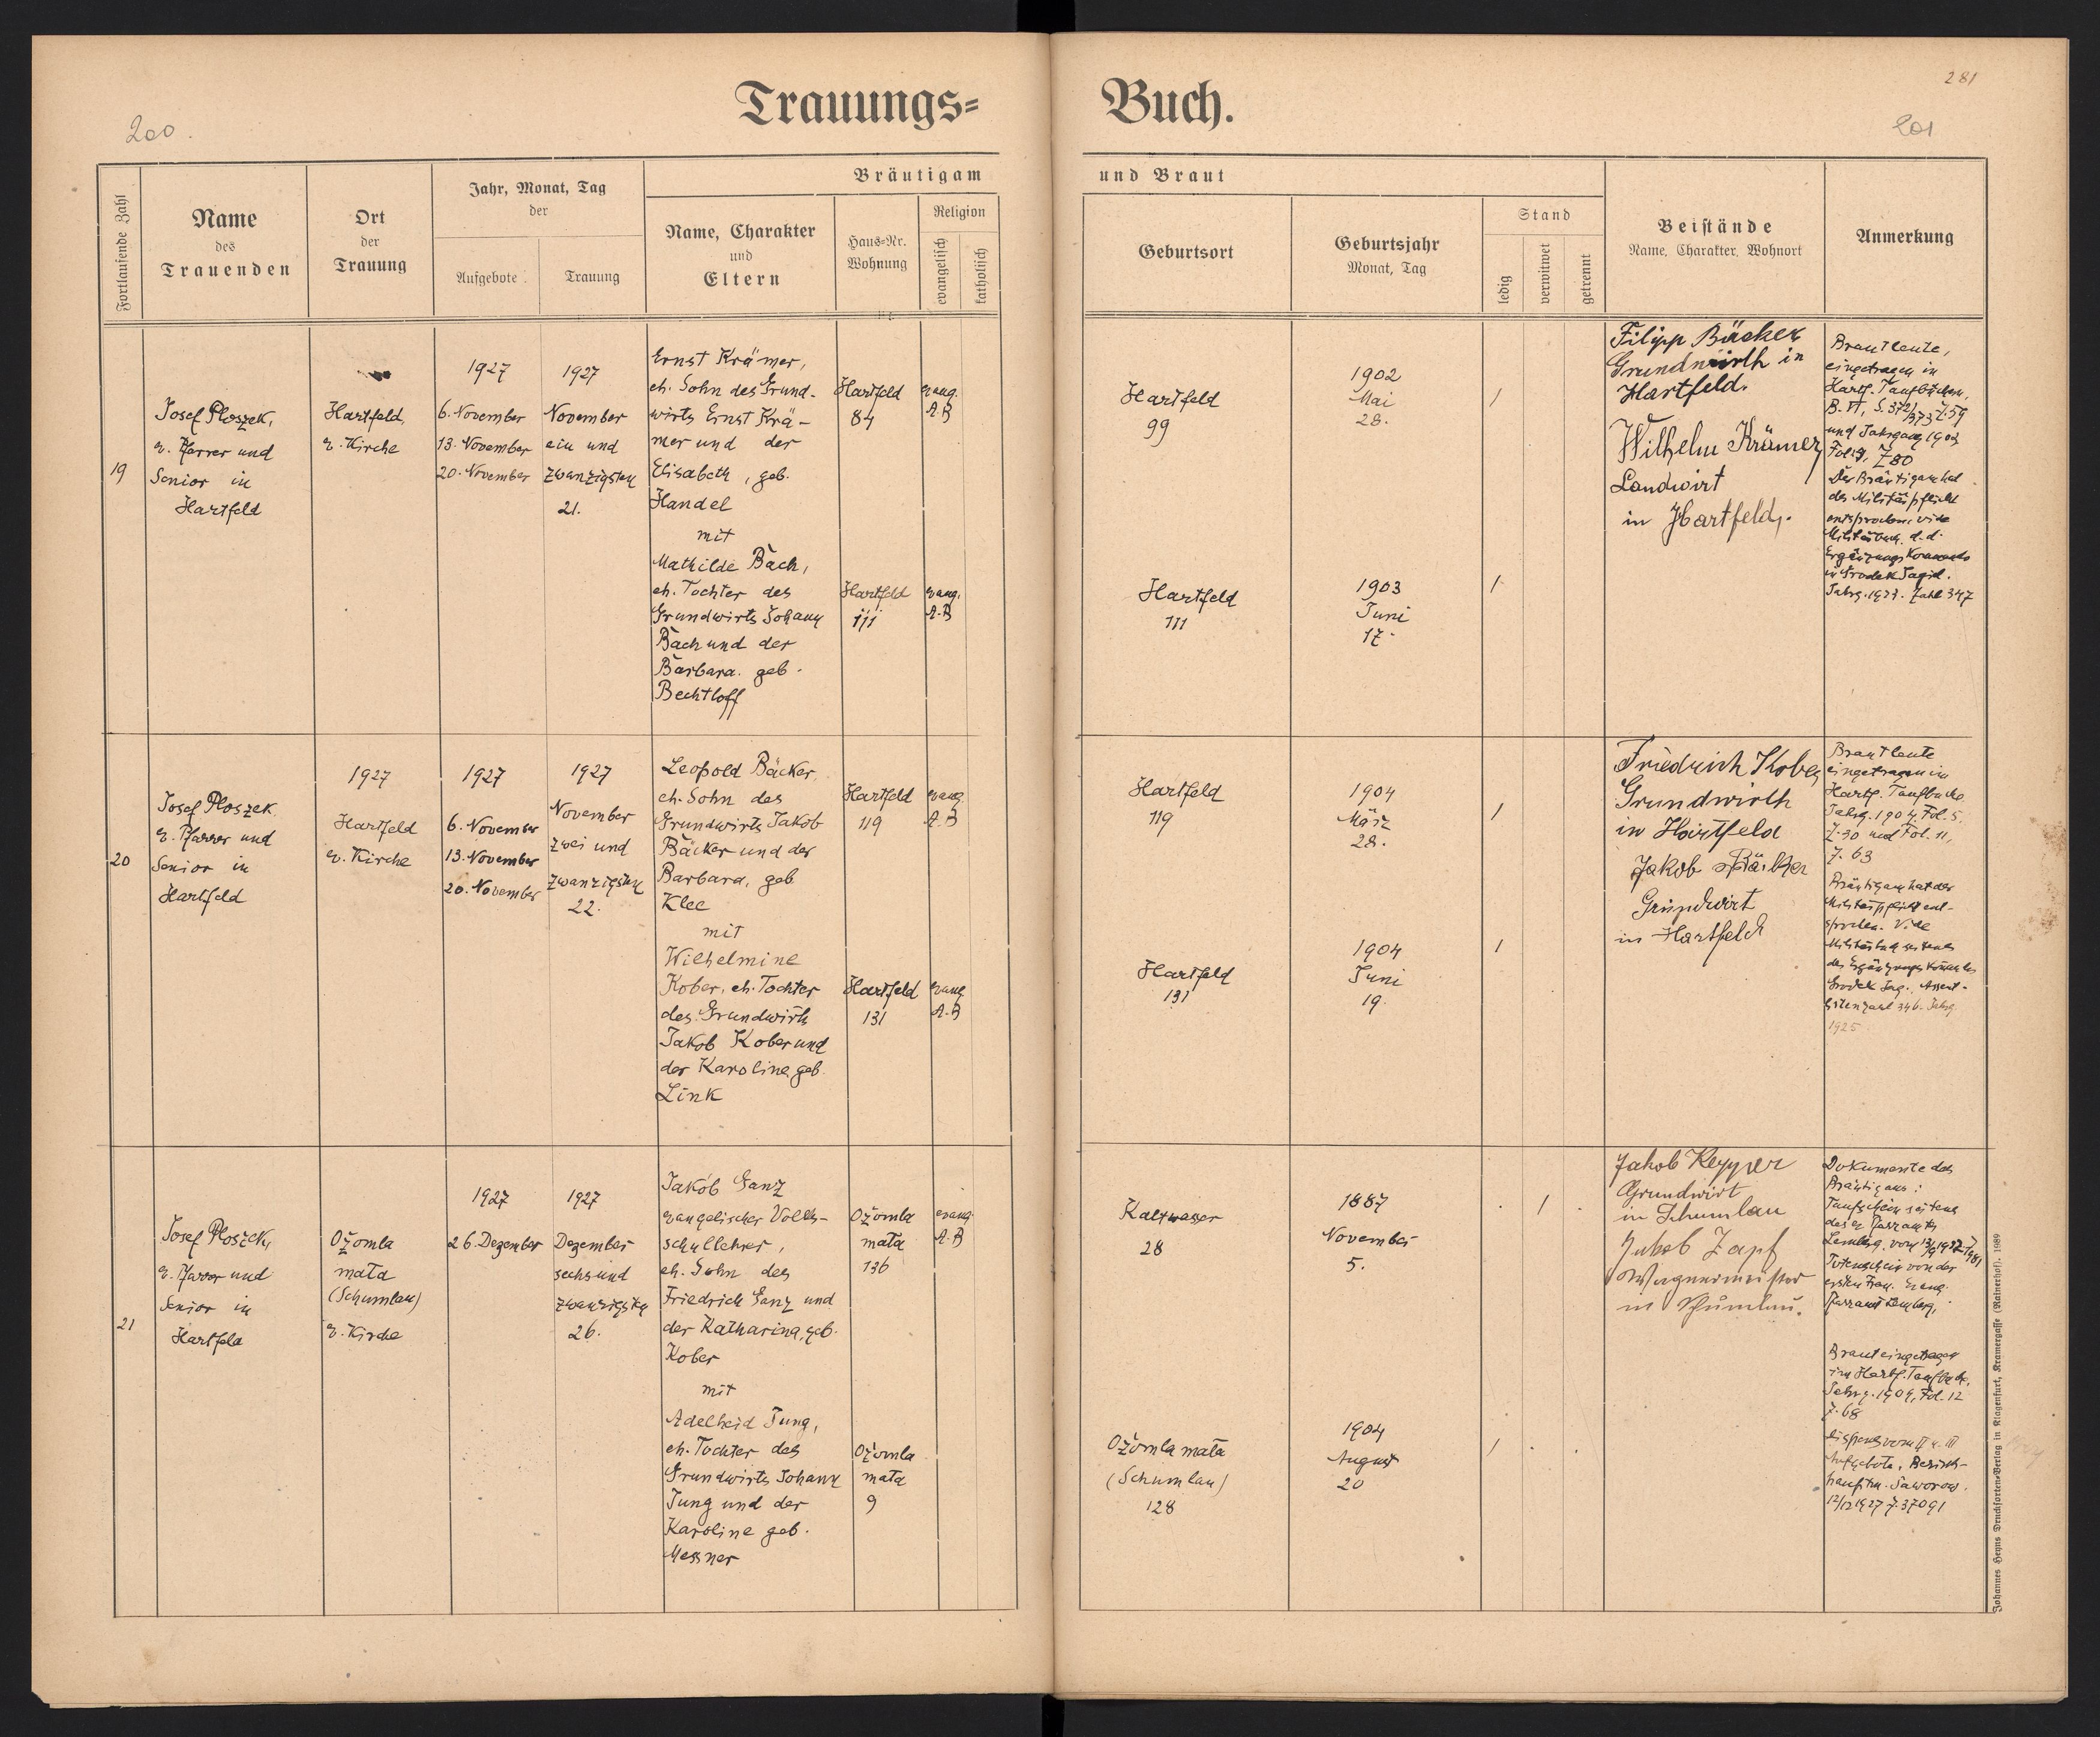 281
200.
201
Trauungs=
Buch.
Fortlaufende Zahl
Name
des
Trauenden
Ort
der
Trauung
Jahr, Monat, Tag
der
Aufgebote
Trauung
Bräutigam
Name, Charakter
und
Eltern
Haus=Nr.
Wohnung
Religion
evangelisch
katholisch
und Braut
Geburtsort
Geburtsjahr
Monat, Tag
Stand
ledig
verwitwet
getrennt
Beistände
Name, Charakter, Wohnort
Anmerkung
19
Josef Ploszek,
e. Pfarrer und
Senior in
Hartfeld
Hartfeld,
e. Kirche
1927
6. November
13. November
20. November
1927
November
ein und
zwanzigsten
21.
Ernst Krämer,
eh. Sohn des Grund-
wirts Ernst Krä-
mer und der
Elisabeth, geb.
Handel
mit
Mathilde Bach,
eh. Tochter des
Grundwirts Johann
Bach und der
Barbara. geb.
Bechtloff
Hartfeld
84
evang.
A.B
Hartfeld
111
evang.
A.B
Hartfeld
99
1902
Mai
28.
/
Hartfeld
111
1903
Juni
17.
/
Filipp Bäcker
Grundwirth in
Hartfeld.
Wilhelm Krämer,
Landwirt
in Hartfeld.
Brautleute,
eingetragen in
Hartf. Taufbüchern,
B. VI, S. 372/373 Z. 59
und Jahrgang 1903
Fol. 9, Z 80
Der Bräutigam hat
der Militärpflicht
entsprochen, vide
Militärbuch. d. d.
Ergänzungs Kommando
in Grodek Jagiel.
Jahrg. 1923. Zahl 347
20
Josef Ploszek
e. Pfarrer und
Senior in
Hartfeld
1927
Hartfeld
e. Kirche
1927
6. November
13. November
20. November
1927
November
zwei und
zwanzigsten
22.
Leopold Bäcker,
eh. Sohn des
Grundwirts Jakob
Bäcker und der
Barbara, geb
Klee
mit
Wilhelmine
Kober, eh. Tochter
des Grundwirts
Jakob Kober und
der Karoline geb.
Link
Hartfeld
119
evang
A.B
Hartfeld
131
evang
A.B
Hartfeld
119
1904
März
28.
/
Hartfeld
131
1904
Juni
19.
1
Friedrich Kober
Grundwirth
in Hartfeld
Jakob Bäcker
Grundwirt
in Hartfeld
Brautleute
eingetragen im
Hartf. Taufbuche
Jahrg. 1904, Fol. 5,
Z. 30 und Fol. 11,
Z. 63
Bräutigam hat der
Militärpflicht ent-
sprochen. Vide
Militärbuch seitens
des Ergänzungs Kommandos
Grodek Jag., Assent-
listenzahl 346. Jahrg.
1925
21
Josef Ploszek,
e. Pfarrer und
Senior in
Hartfeld
Ożomla
mała
(Schumlau)
e. Kirche
1927
26. Dezember
1927
Dezember
sechs und
zwanzigsten
26.
Jakob Ganz
evangelischer Volks-
schullehrer,
eh. Sohn des
Friedrich Ganz und
der Katharina, geb.
Kober
mit
Adelheid Jung,
eh. Tochter des
Grundwirts Johann
Jung und der
Karoline geb.
Messner
Ożomla
mała
136
evang.
A.B
Ożomla
mała
9
Kaltwasser
28
1887
November
5.
1
Ożomla mała
(Schumlau)
128
1904
August
20
/
Jakob Kepper
Grundwirt
in Schumlau
Jakob Zapf
Wagnermeister
in Schumlau.
Dokumente des
Bräutigams:
Taufschein seitens
des e. Pfarramts
Lemberg, vom
Totenschein von der
ersten Frau. Evang.
Pfarramt Lemberg,
Braut eingetragen
im Hartf. Taufbuch,
Jahrg. 1904, Fol. 12
Z. 68
Dispens vom II u. III
Aufgebote, Bezirks-
hauptm. Jaworow.
12/12 1927 Z. 37091
Johannes Heyns Drucksorten=Verlag in Klagenfurt, Kramergasse (Rainerhof). 1989